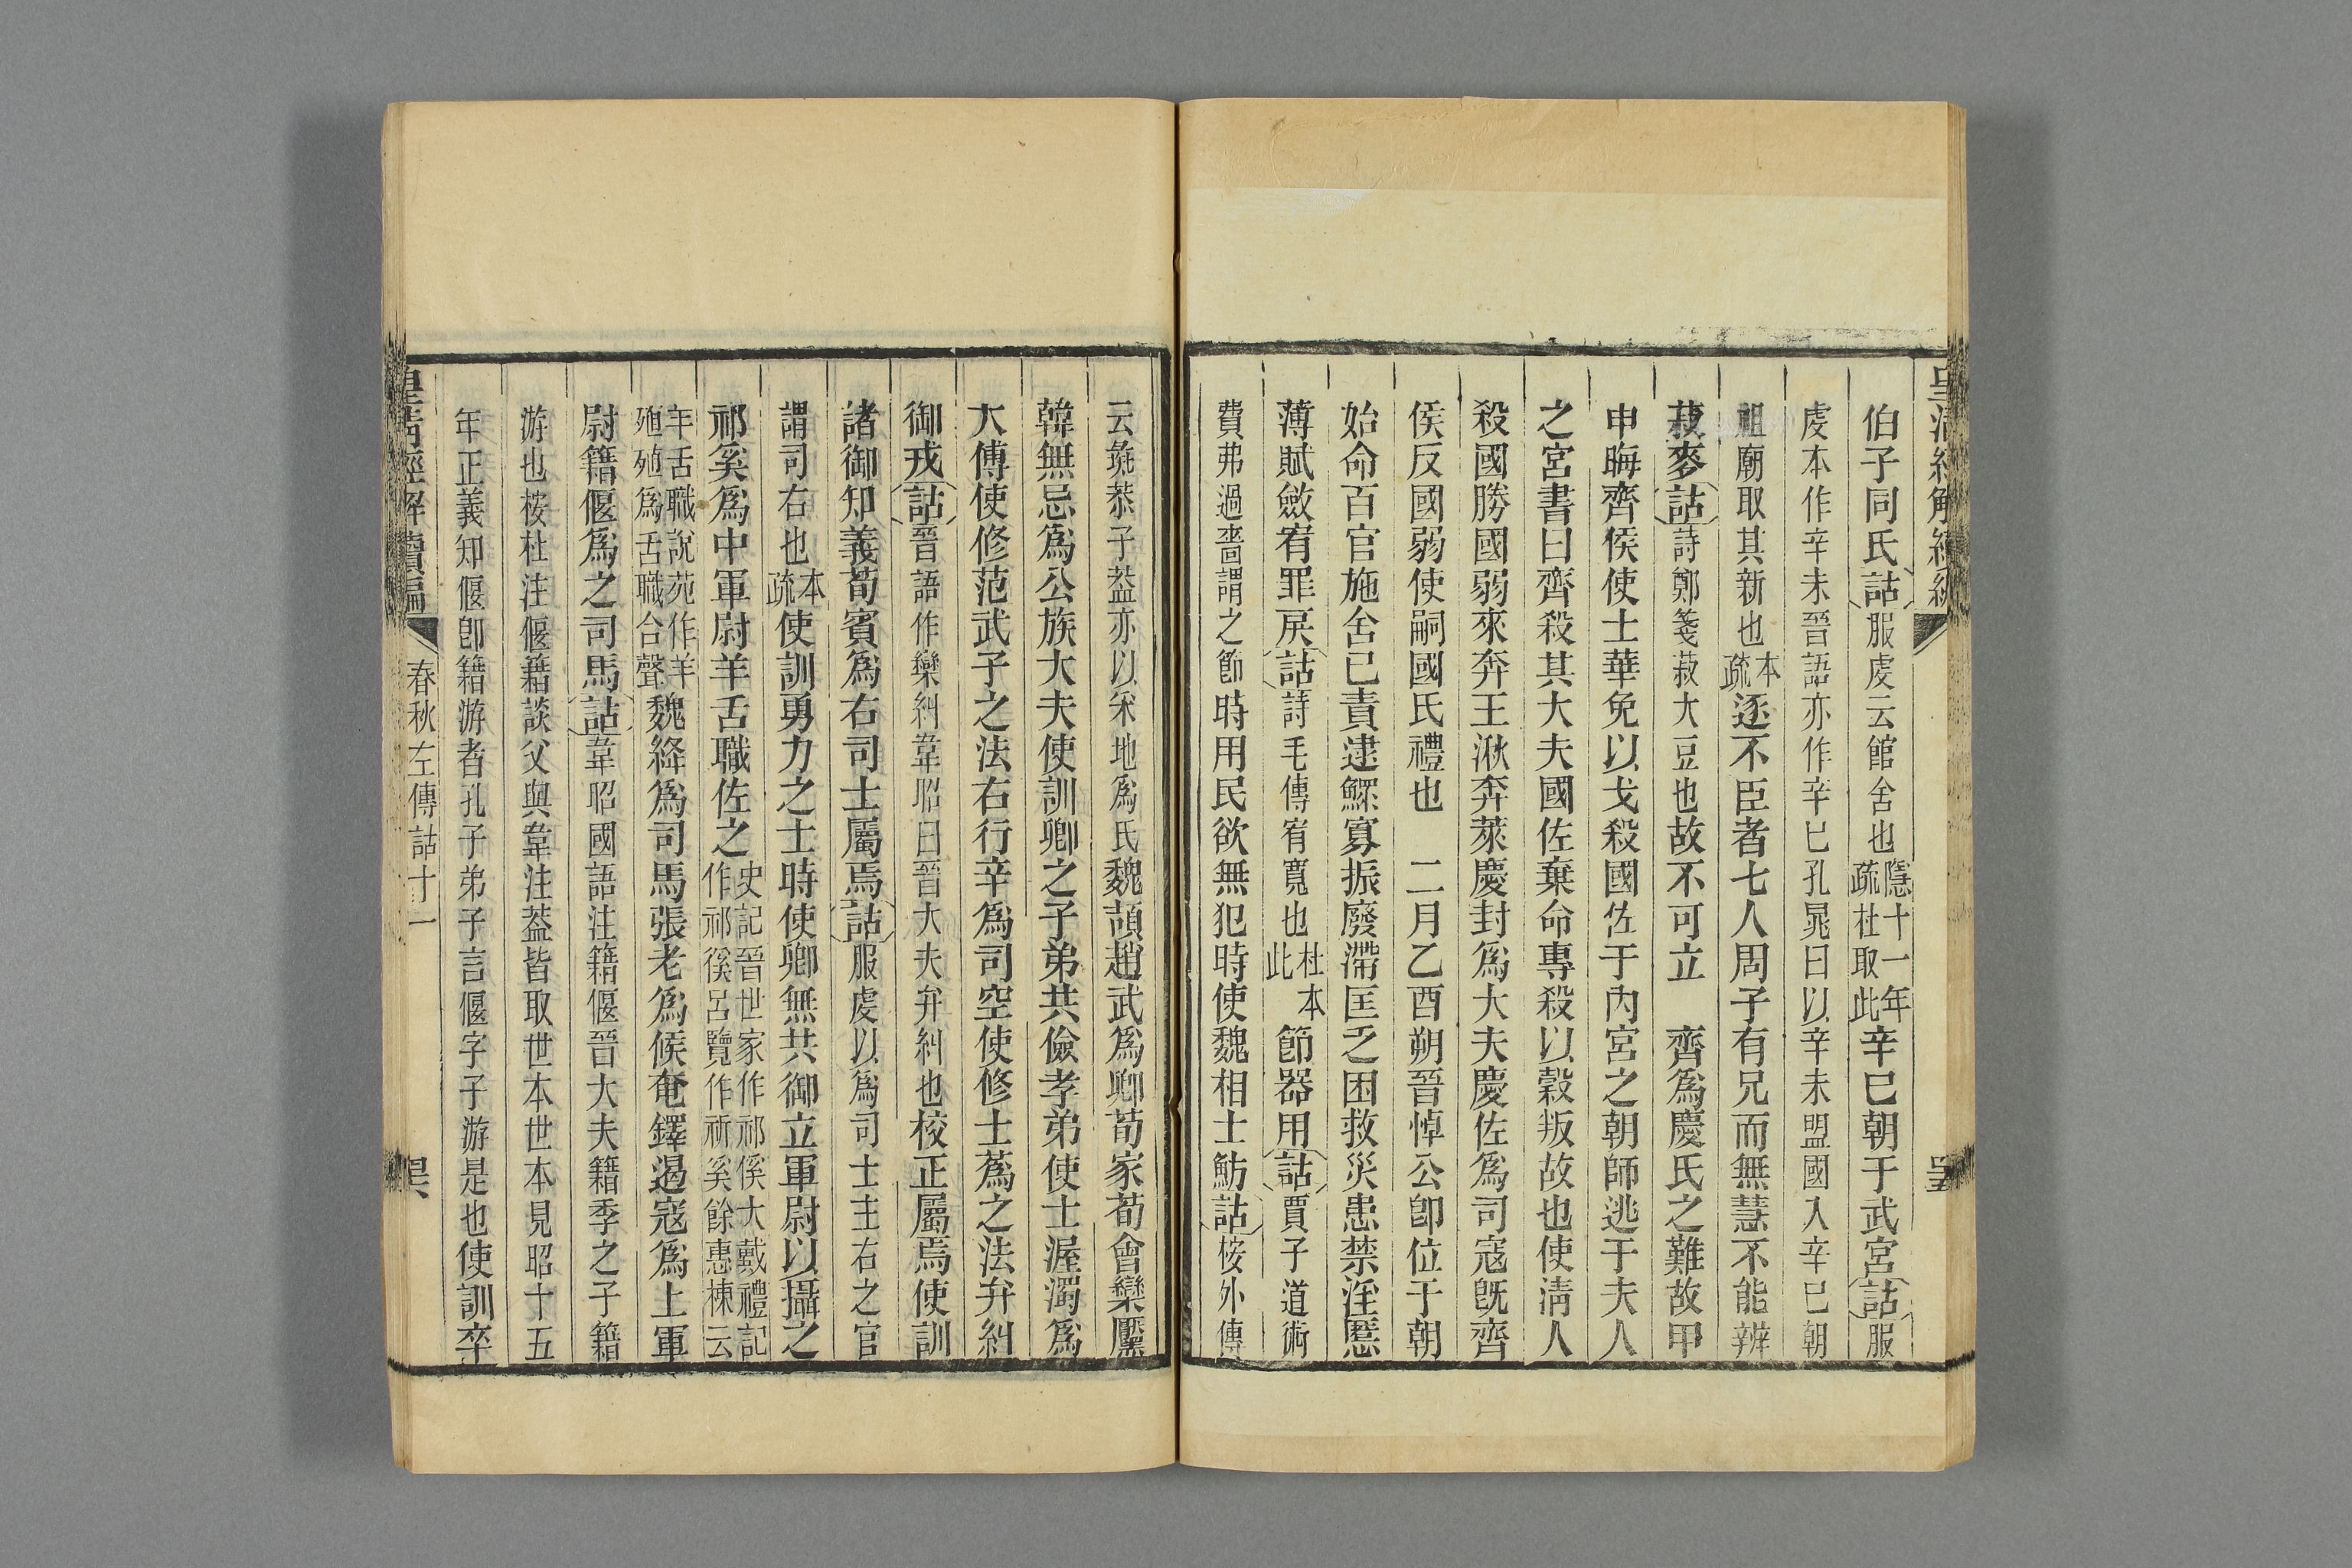 皇清經解續編
伯子同氏詁服虔云館舍也隱十一年疏杜取此辛巳朝于武宮詁服
虔本作辛未晉語亦作辛巳孔晁曰以辛未盟國入辛巳朝
祖廟取其新也本疏逐不臣者七人周子有兄而無慧不能辨
菽麥詁詩鄭箋菽大豆也故不可立　齊爲慶氏之難故甲
申晦齊侯使士華免以戈殺國佐于內宮之朝師逃于夫人
之宮書曰齊殺其大夫國佐棄命專殺以穀叛故也使淸人
殺國勝國弱來奔王湫奔萊慶封爲大夫慶佐爲司寇旣齊
侯反國弱使嗣國氏禮也　二月乙酉朔晉悼公卽位于朝
始命百官施舍已責逮鰥寡振廢滯匡乏困救災患禁淫慝
薄賦斂宥罪戾詁詩毛傳宥寬也杜本此節器用詁賈子道術
費弗過啬謂之節時用民欲無犯時使魏相士魴詁桉外傳
云彘恭子葢亦以采地爲氏魏頡趙武爲卿荀家荀會欒黶
韓無忌爲公族大夫使訓卿之子弟共儉孝弟使士渥濁爲
大傅使修范武子之法右行辛爲司空使修士蔿之法弁糾
御戎詁晉語作欒糾韋昭曰晉大夫弁糾也校正屬焉使訓
諸御知義荀賓爲右司士屬焉詁服虔以爲司士主右之官
謂司右也本疏使訓勇力之士時使卿無共御立軍尉以攝之
祁奚爲中軍尉羊舌職佐之史記晉世家作祁傒大戴禮記作祁徯呂覽作祈奚餘惠棟云
羊舌職說苑作羊殖殖爲舌職合聲魏絳爲司馬張老爲候奄鐸遏寇爲上軍
尉籍偃爲之司馬詁韋昭國語注籍偃晉大夫籍季之子籍
游也桉杜注偃籍談父與韋注葢皆取世本世本見昭十五
年正義知偃卽籍游者孔子弟子言偃字子游是也使訓卒
皇淸經解續編　春秋左傳詁十一